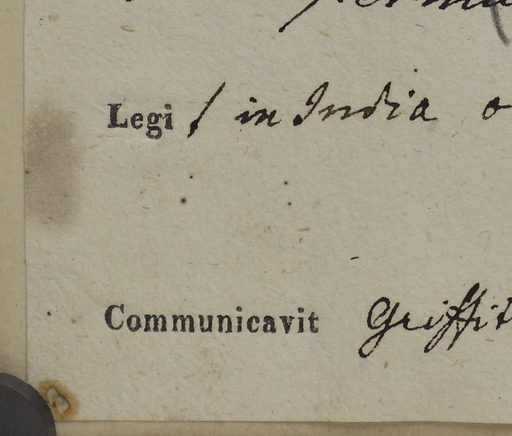 Legi / in India o
Communicavit Griffit